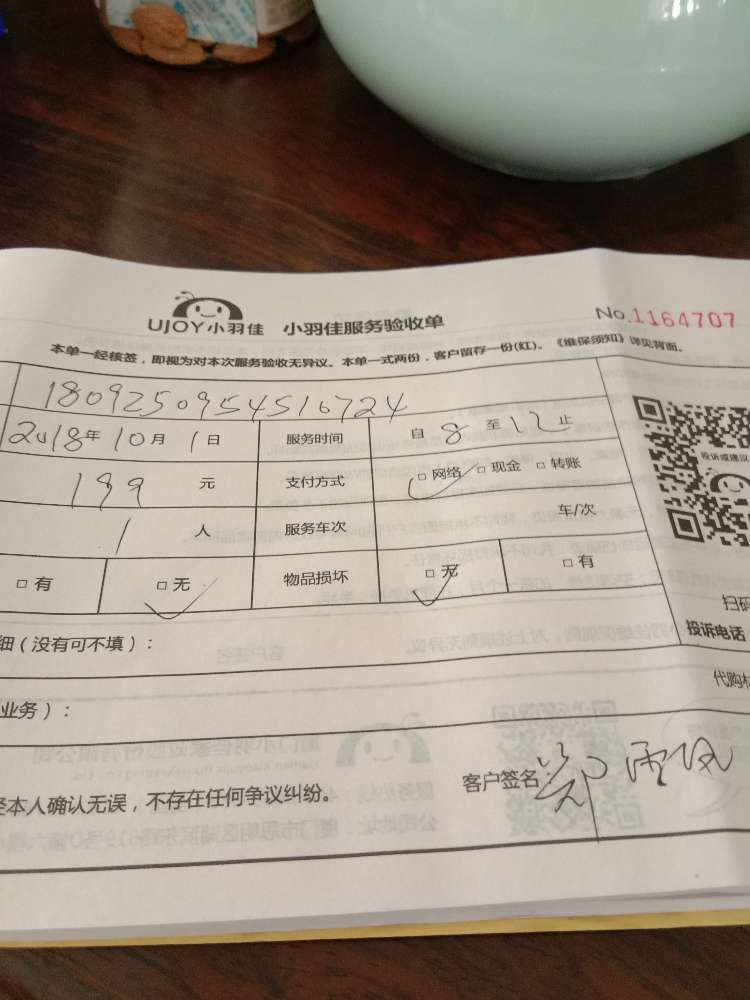 UJOY小羽佳 小羽佳服务验收单 No.1164707
本单一经核签，即视为对本次服务验收无异议。本单一式两份，客户留存一份(红)。《维保须知》详见背面。
1809250954516724
2018年10月1日 服务时间 自8至12止
投诉或建议
199元 支付方式 □网络 □现金 □转账
1人 服务车次 车/次
□有 □无 物品损坏 □无 □有
扫码
细（没有可不填）： 投诉电话
业务）： 代购材
经本人确认无误，不存在任何争议纠纷。 客户签名